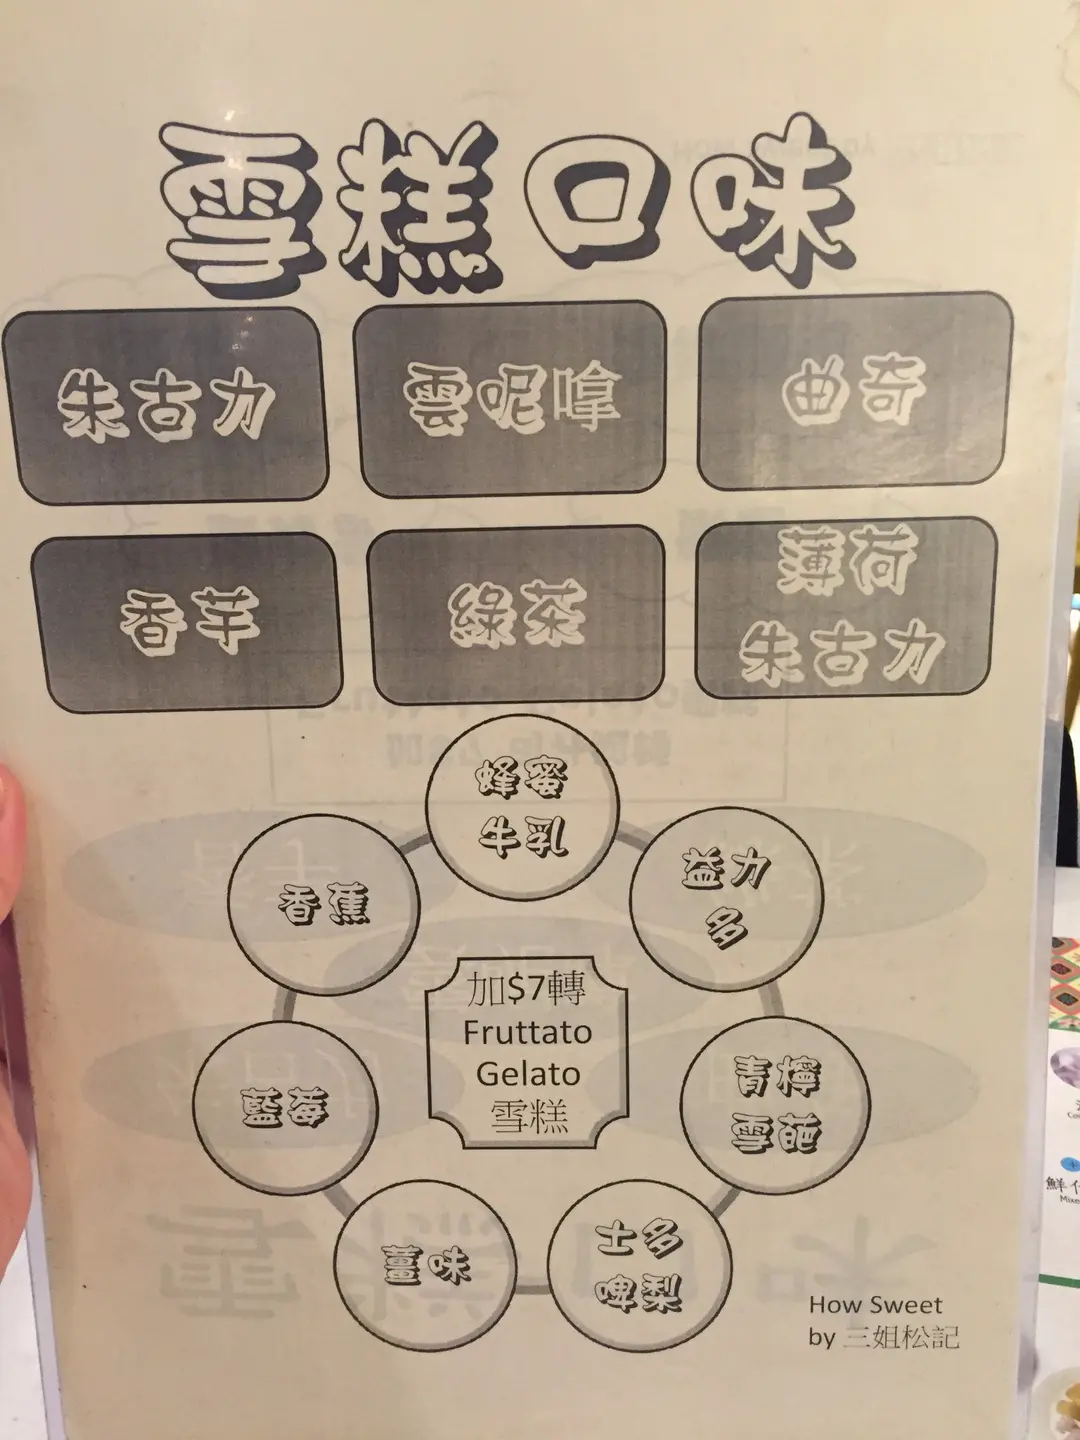 雪糕口味
朱古力
雲呢嗱
曲奇
香芋
綠茶
薄荷
朱古力
蜂蜜
牛乳
益力
多
青檸
雪葩
士多
啤梨
薑味
藍莓
香蕉
加$7轉
Fruttato
Gelato
雪糕
How Sweet
by 三姐松記